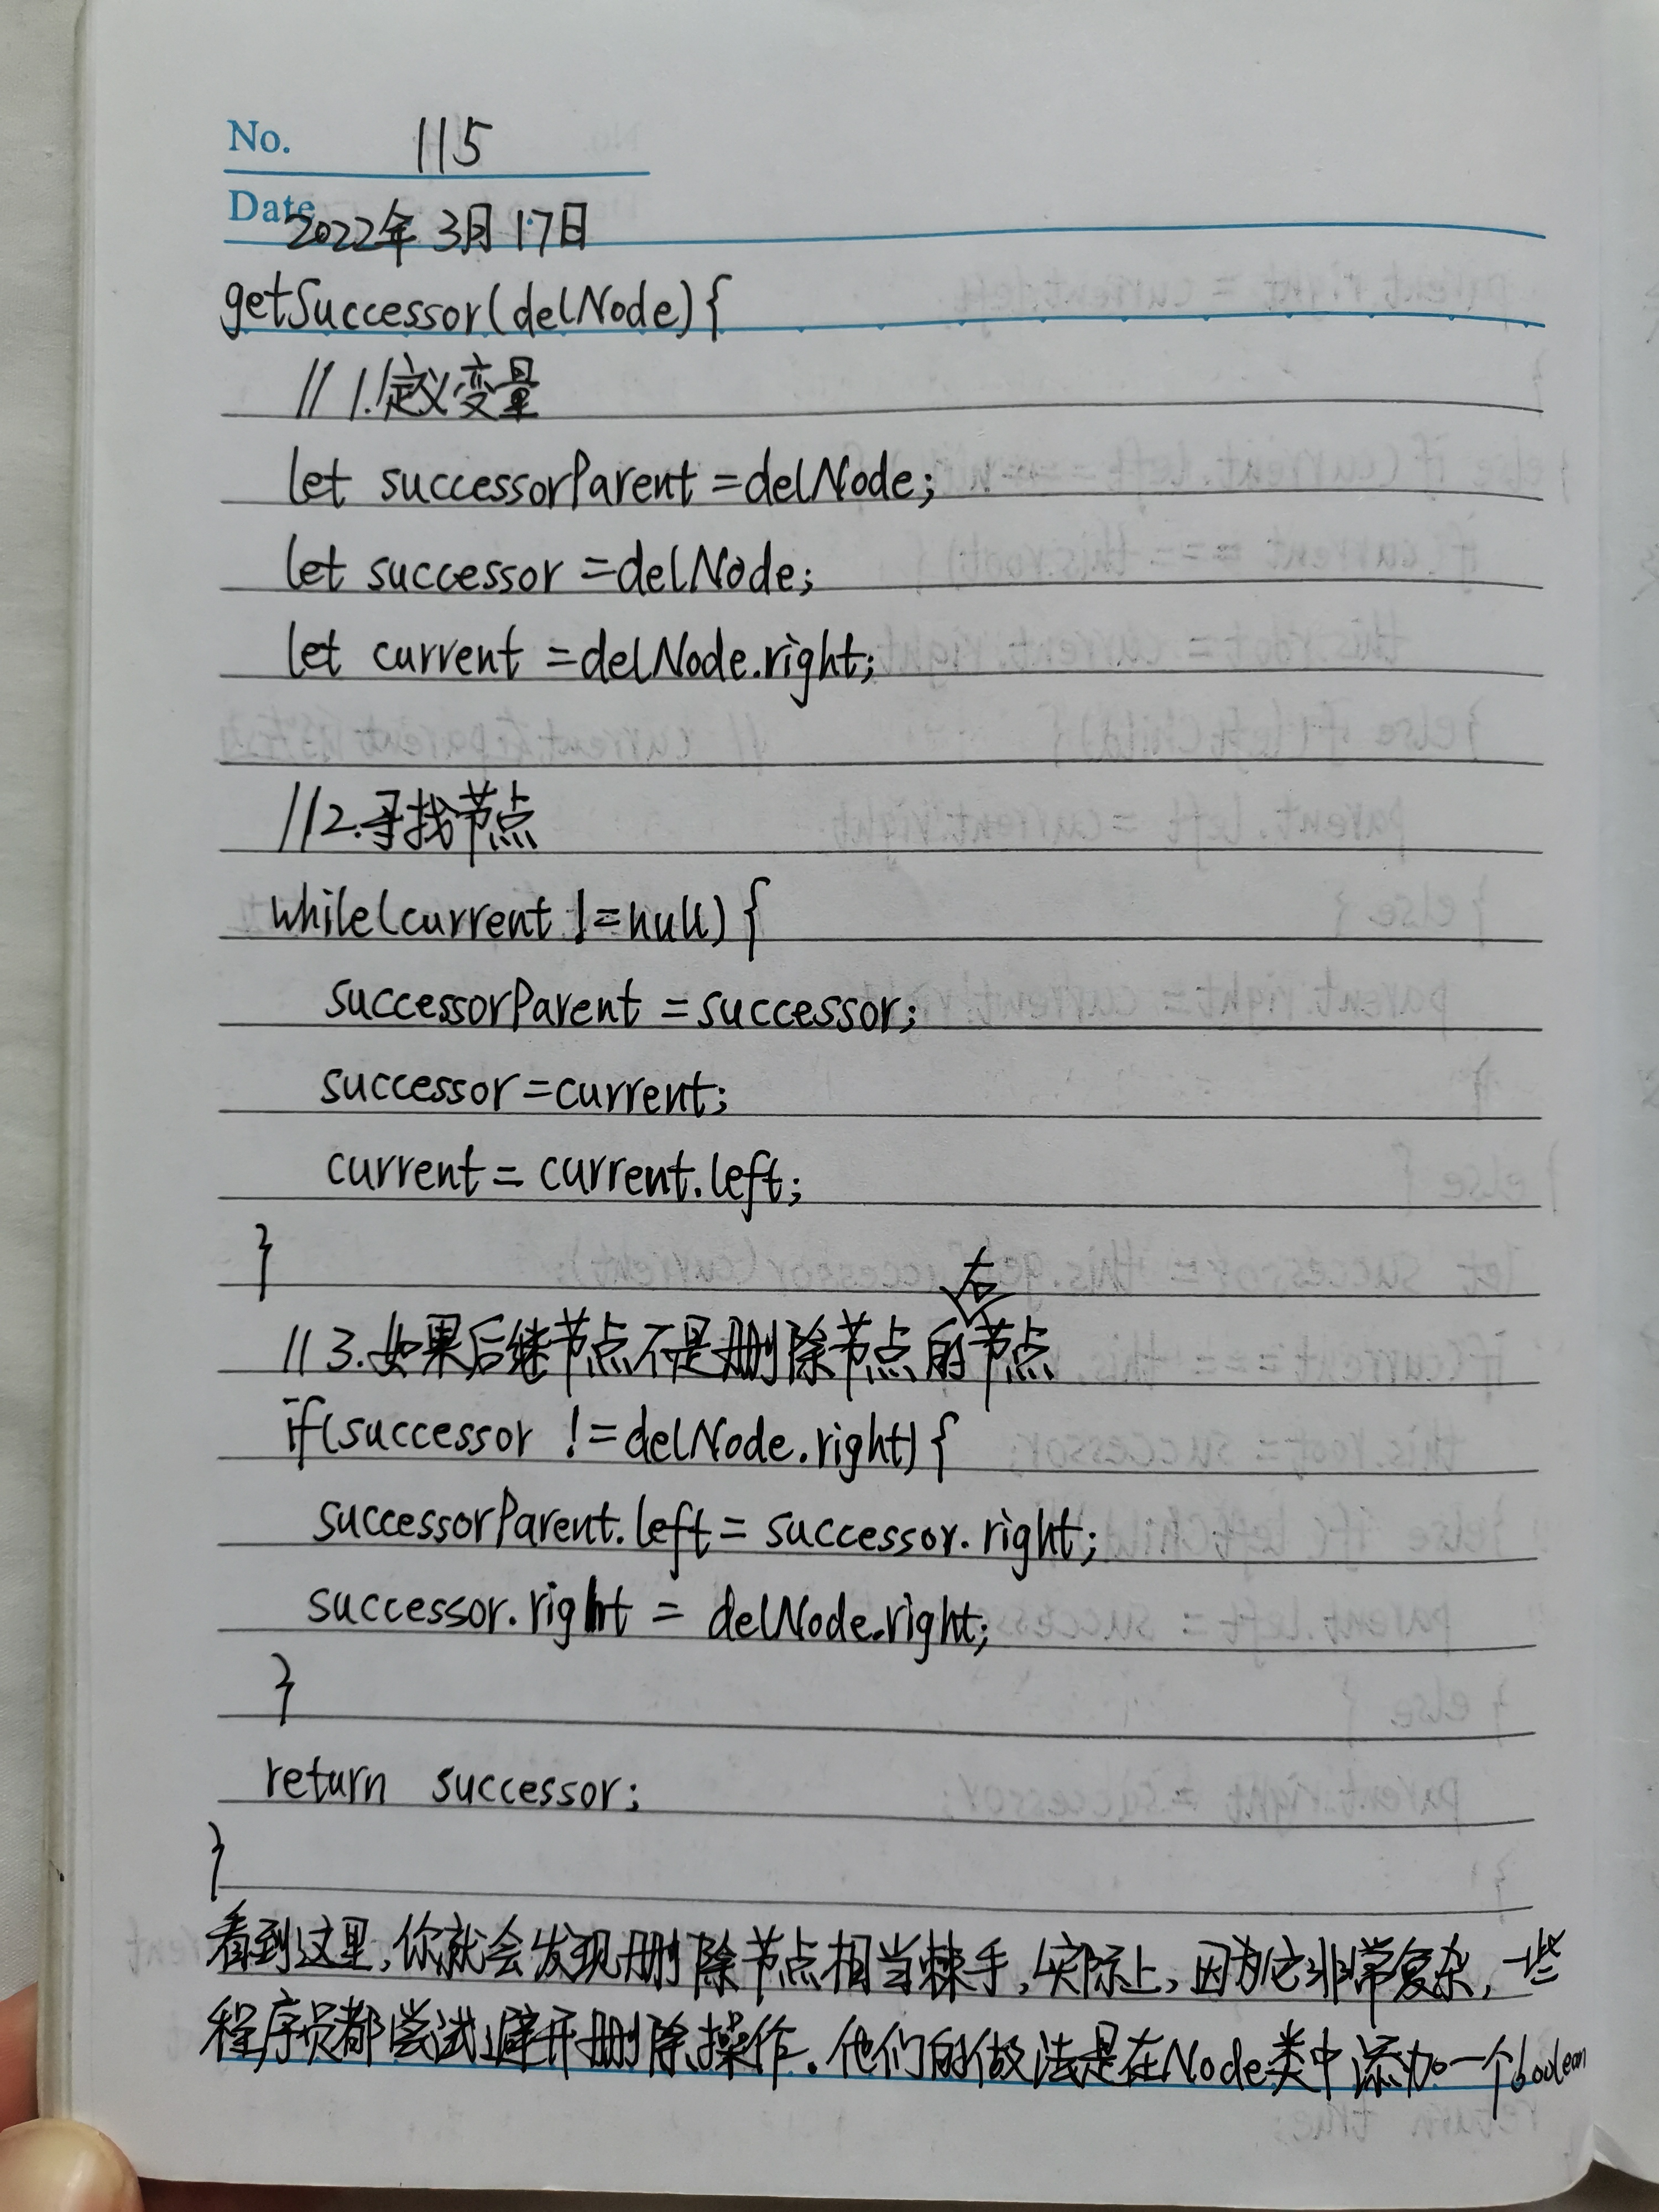 No. 115
Date 2022年3月17日
getSuccessor(delNode){
// 1.定义变量
let successorParent =delNode;
let successor =delNode;
let current =delNode.right;
//2.寻找节点
while(current !=null){
successorParent =successor;
successor=current;
current= current.left;
}
//3.如果后继节点不是删除节点的右节点
if(successor !=delNode.right){
successorParent.left= successor.right;
successor.right = delNode.right;
}
return successor;
}
看到这里,你就会发现删除节点相当棘手,实际上,因为它非常复杂,一些
程序员都尝试避开删除操作.他们的做法是在Node类中添加一个boolean